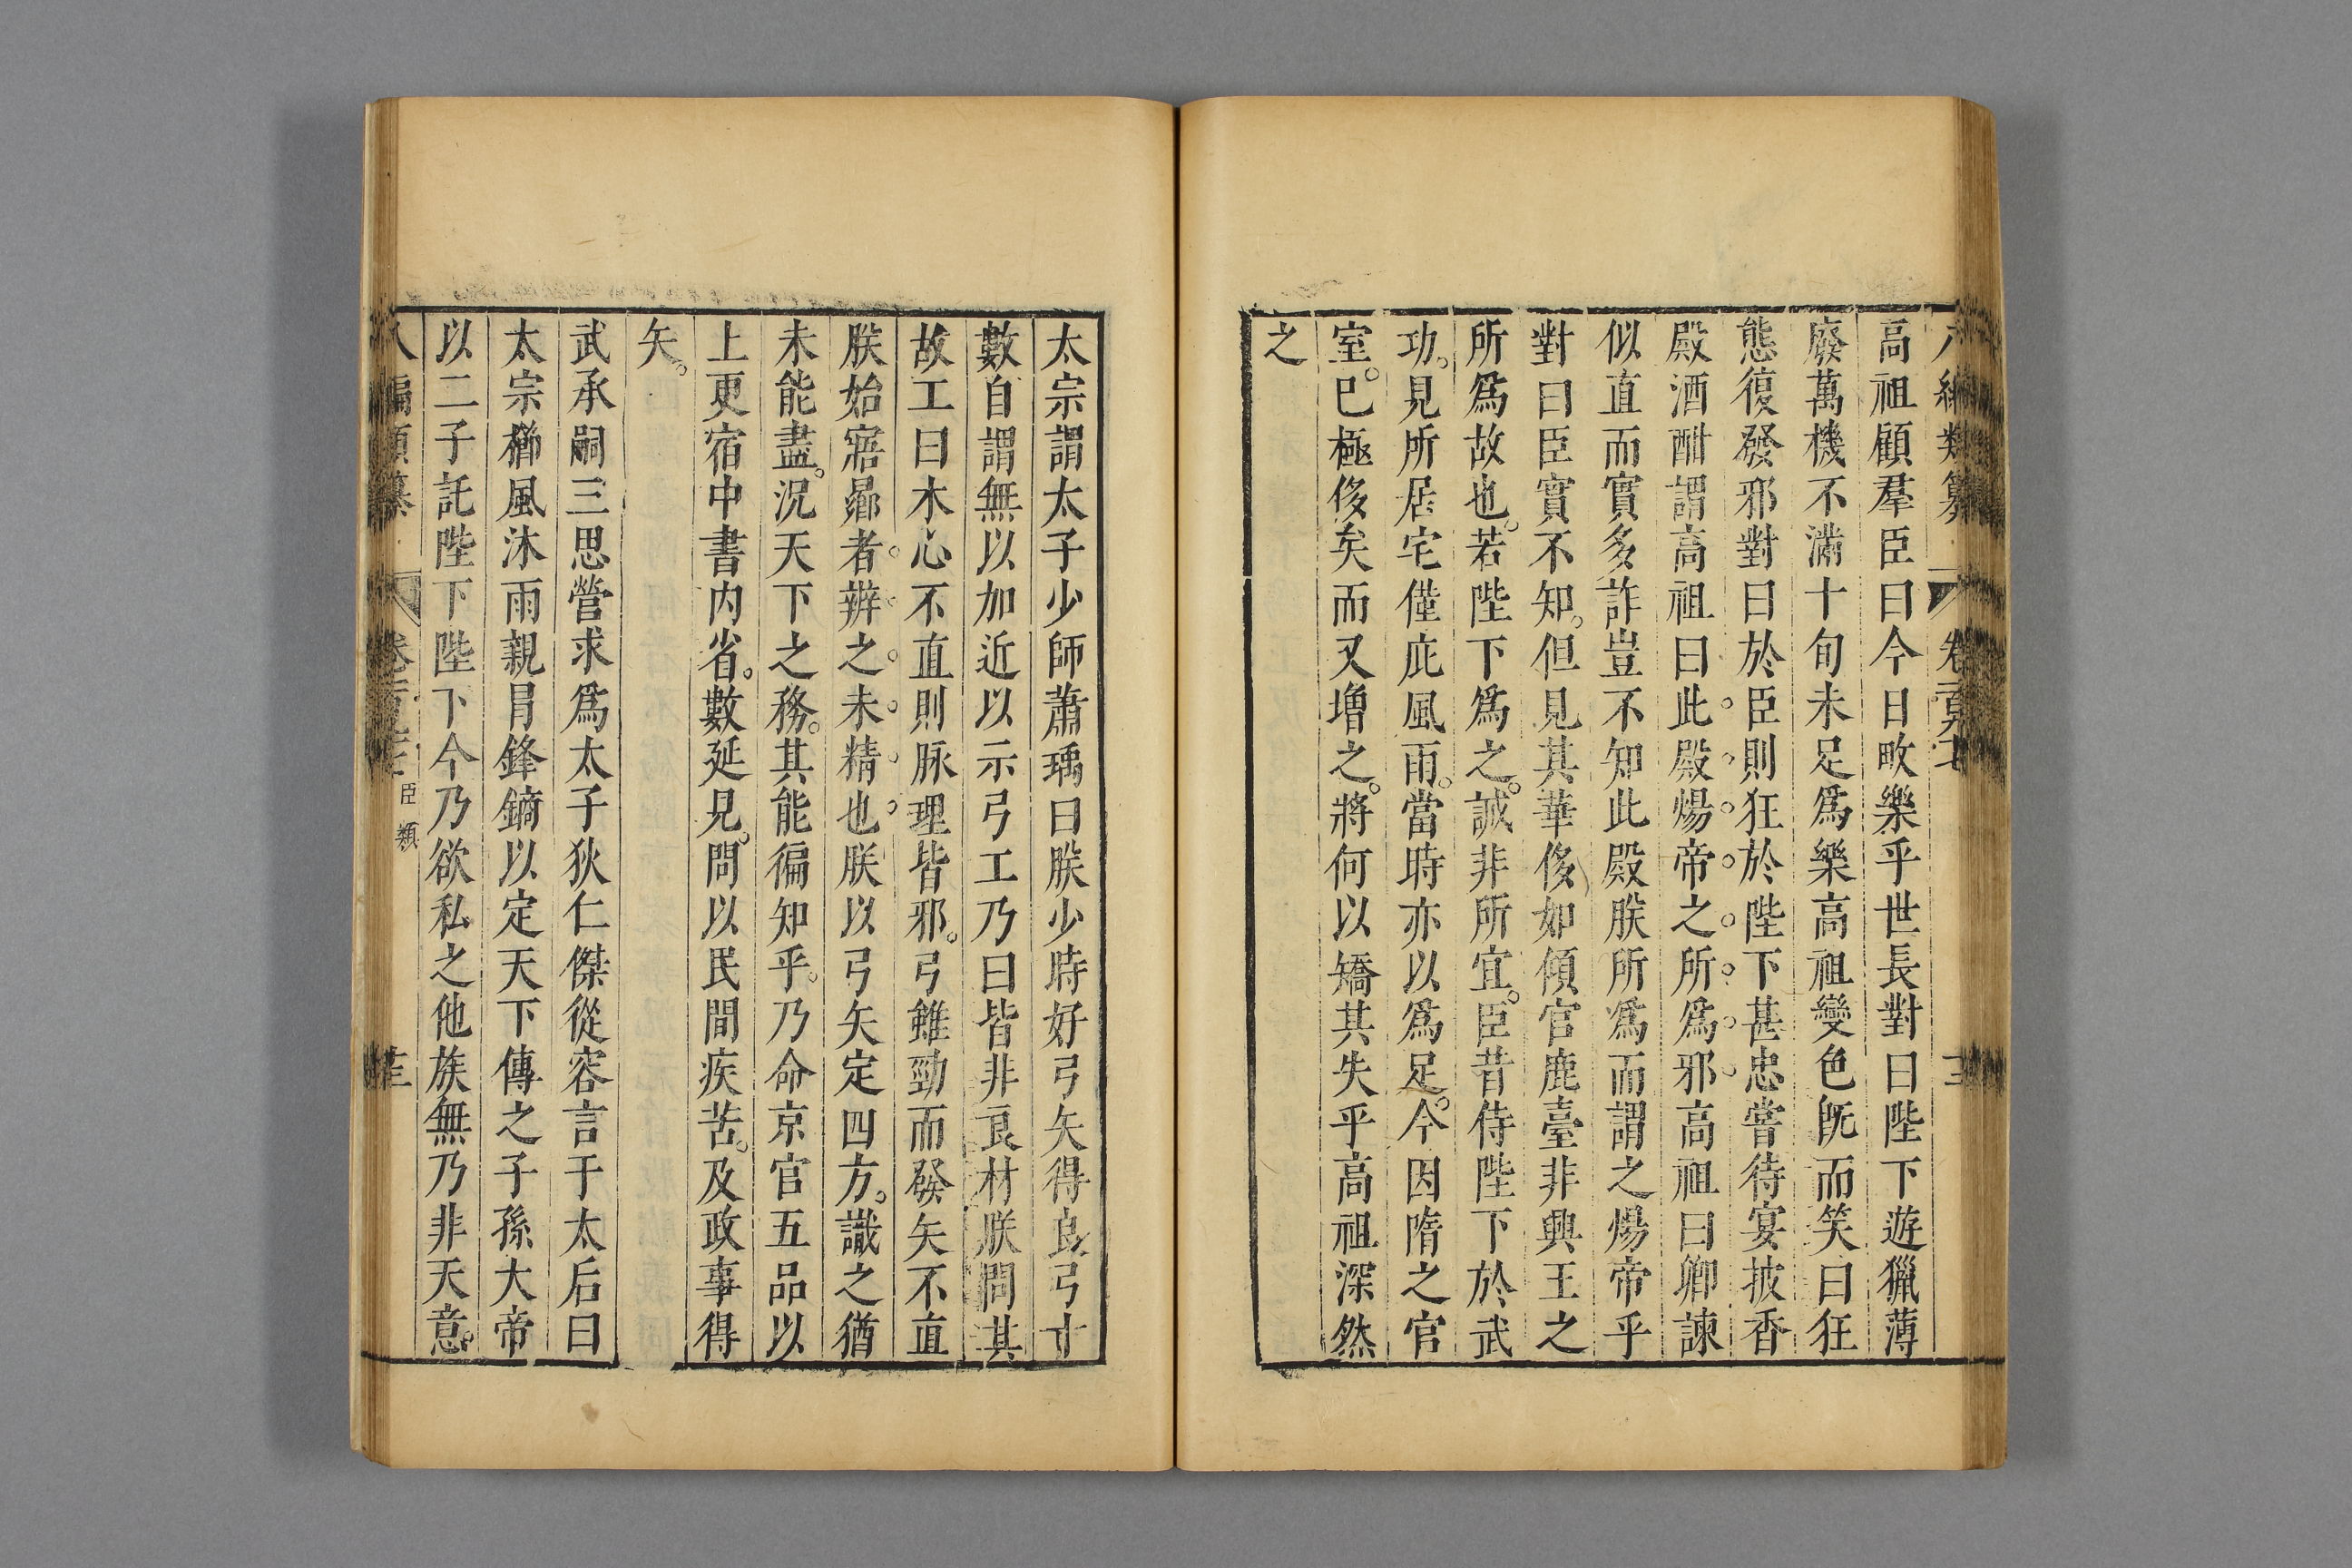 高祖顧羣臣曰今日畋樂乎世長對曰陛下遊獵薄
廢萬機不滿十旬未足爲樂高祖變色旣而笑曰狂
態復發邪對曰於臣則狂於陛下甚忠嘗待宴披香
殿酒酣謂高祖曰此殿煬帝之所爲邪高祖曰卿諫
似直而實多詐豈不知此殿朕所爲而謂之煬帝乎
對曰臣實不知但見其華侈如傾官鹿臺非興王之
所爲故也若陛下爲之誠非所宜臣昔侍陛下於武
功見所居宅僅庇風雨當時亦以爲足今因隋之官
室已極侈矣而又增之將何以矯其失乎高祖深然
之
太宗謂太子少師蕭瑀曰朕少時好弓矢得良弓十
數自謂無以加近以示弓工乃曰皆非良材朕問其
故工曰木心不直則脉理皆邪弓雖勁而發矢不直
朕始寤曏者辨之未精也朕以弓矢定四方識之猶
未能盡況天下之務其能徧知乎乃命京官五品以
上更宿中書内省數延見問以民間疾苦及政事得
矢
武承嗣三思營求爲太子狄仁傑從容言于太后曰
太宗櫛風沐雨親冐鋒鏑以定天下傳之子孫大帝
以二子託陛下陛下今乃欲私之他族無乃非天意
臣類